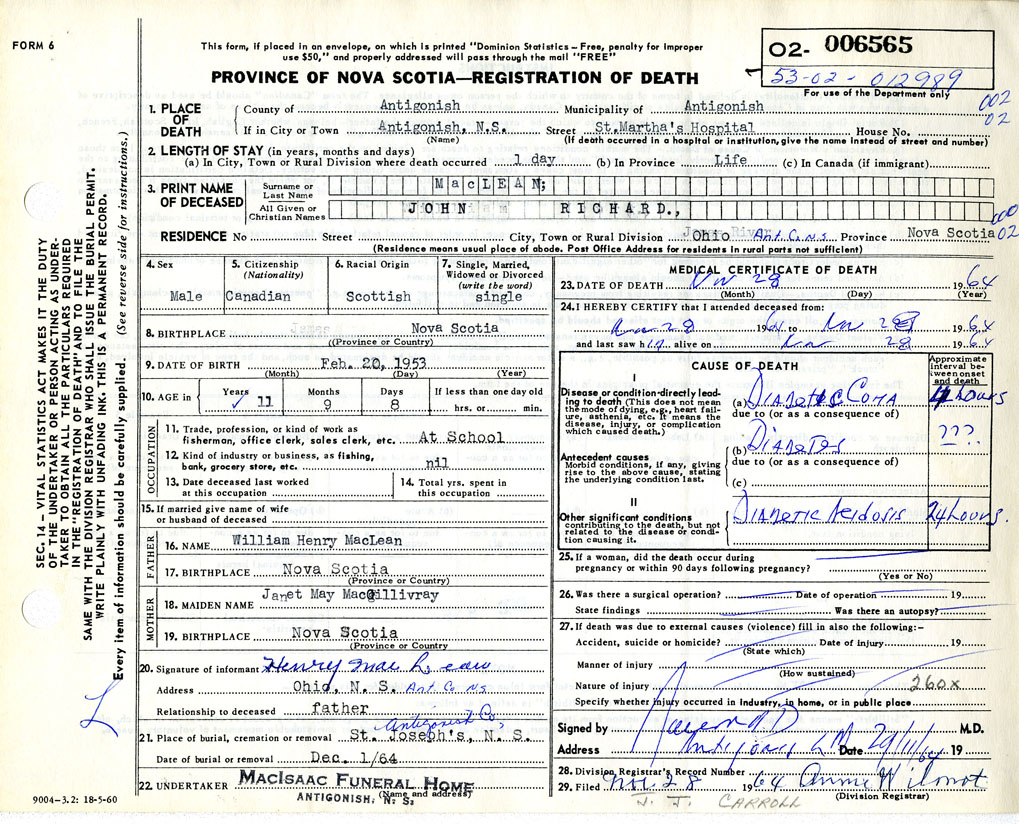 FORM 6
This form, if placed in an envelope, on which is printed "Dominion Statistics – Free, penalty for improper
use $50," and properly addressed will pass through the mail "FREE"
PROVINCE OF NOVA SCOTIA—REGISTRATION OF DEATH
O2- 006565
53-02-012989
For use of the Department only
002
02
1. PLACE OF DEATH
County of Antigonish Municipality of Antigonish
If in City or Town Antigonish, N.S. Street St.Martha's Hospital House No.
(Name) (If death occurred in a hospital or institution, give the name instead of street and number)
2. LENGTH OF STAY (in years, months and days)
(a) In City, Town or Rural Division where death occurred 1 day (b) In Province Life (c) In Canada (if immigrant)
3. PRINT NAME OF DECEASED
Surname or Last Name MacLEAN;
All Given or Christian Names JOHN RICHARD.,
000
02
RESIDENCE No Street City, Town or Rural Division Ohio Ant. Co. N.S. Province Nova Scotia
(Residence means usual place of abode. Post Office Address for residents in rural parts not sufficient)
4. Sex Male
5. Citizenship (Nationality) Canadian
6. Racial Origin Scottish
7. Single, Married, Widowed or Divorced (write the word) single
8. BIRTHPLACE James Nova Scotia
(Province or Country)
9. DATE OF BIRTH Feb. 20, 1953
(Month) (Day) (Year)
10. AGE in Years 11 Months 9 Days 8 If less than one day old hrs. or min.
OCCUPATION
11. Trade, profession, or kind of work as
fisherman, office clerk, sales clerk, etc. At School
12. Kind of industry or business, as fishing,
bank, grocery store, etc. nil
13. Date deceased last worked
at this occupation
14. Total yrs. spent in
this occupation
15. If married give name of wife
or husband of deceased
FATHER
16. NAME William Henry MacLean
17. BIRTHPLACE Nova Scotia
(Province or Country)
MOTHER
18. MAIDEN NAME Janet May MacGillivray
19. BIRTHPLACE Nova Scotia
(Province or Country
20. Signature of informant Henry MacLean
Address Ohio, N. S. Ant. Co. N.S.
Relationship to deceased father
Antigonish Co,
21. Place of burial, cremation or removal St. Joseph's, N. S.
Date of burial or removal Dec. 1/64
22. UNDERTAKER MACISAAC FUNERAL HOME
(Name and address)
ANTIGONISH, N. S.
9004-3.2: 18-5-60
MEDICAL CERTIFICATE OF DEATH
23. DATE OF DEATH Nov 28 1964
(Month) (Day) (Year)
24. I HEREBY CERTIFY that I attended deceased from:
Nov 28 1964 to Nov 28 1964
and last saw him alive on Nov 28 1964
CAUSE OF DEATH
Approximate Interval between onset and death
I
Disease or condition directly leading to death (This does not mean the mode of dying, e.g., heart failure, asthenia, etc. It means the disease, injury, or complication which caused death.)
(a) DIABETIC COMA 4 hours
due to (or as a consequence of)
(b) DIABETES ???
Antecedent causes
Morbid conditions, if any, giving rise to the above cause, stating the underlying condition last.
due to (or as a consequence of)
(c)
II
Other significant conditions
contributing to the death, but not related to the disease or condition causing it.
DIABETIC ACIDOSIS 24 hours.
25. If a woman, did the death occur during
pregnancy or within 90 days following pregnancy?
(Yes or No)
26. Was there a surgical operation? Date of operation 19
State findings Was there an autopsy?
27. If death was due to external causes (violence) fill in also the following:-
Accident, suicide or homicide? Date of injury 19
(State which)
Manner of injury
(How sustained)
Nature of injury 260X
Specify whether injury occurred in Industry, in home, or in public place
Signed by M.D.
Address Antigonish Date 29/11/64 19
28. Division Registrar's Record Number
29. Filed Nov. 28 1964 Annie Wilmot
(Division Registrar)
J. J. CARROLL
SEC. 14 – VITAL STATISTICS ACT MAKES IT THE DUTY
OF THE UNDERTAKER OR PERSON ACTING AS UNDER-
TAKER TO OBTAIN ALL THE PARTICULARS REQUIRED
IN THE "REGISTRATION OF DEATH" AND TO FILE THE
SAME WITH THE DIVISION REGISTRAR WHO SHALL ISSUE THE BURIAL PERMIT.
WRITE PLAINLY WITH UNFADING INK. THIS IS A PERMANENT RECORD.
Every item of information should be carefully supplied. (See reverse side for instructions.)